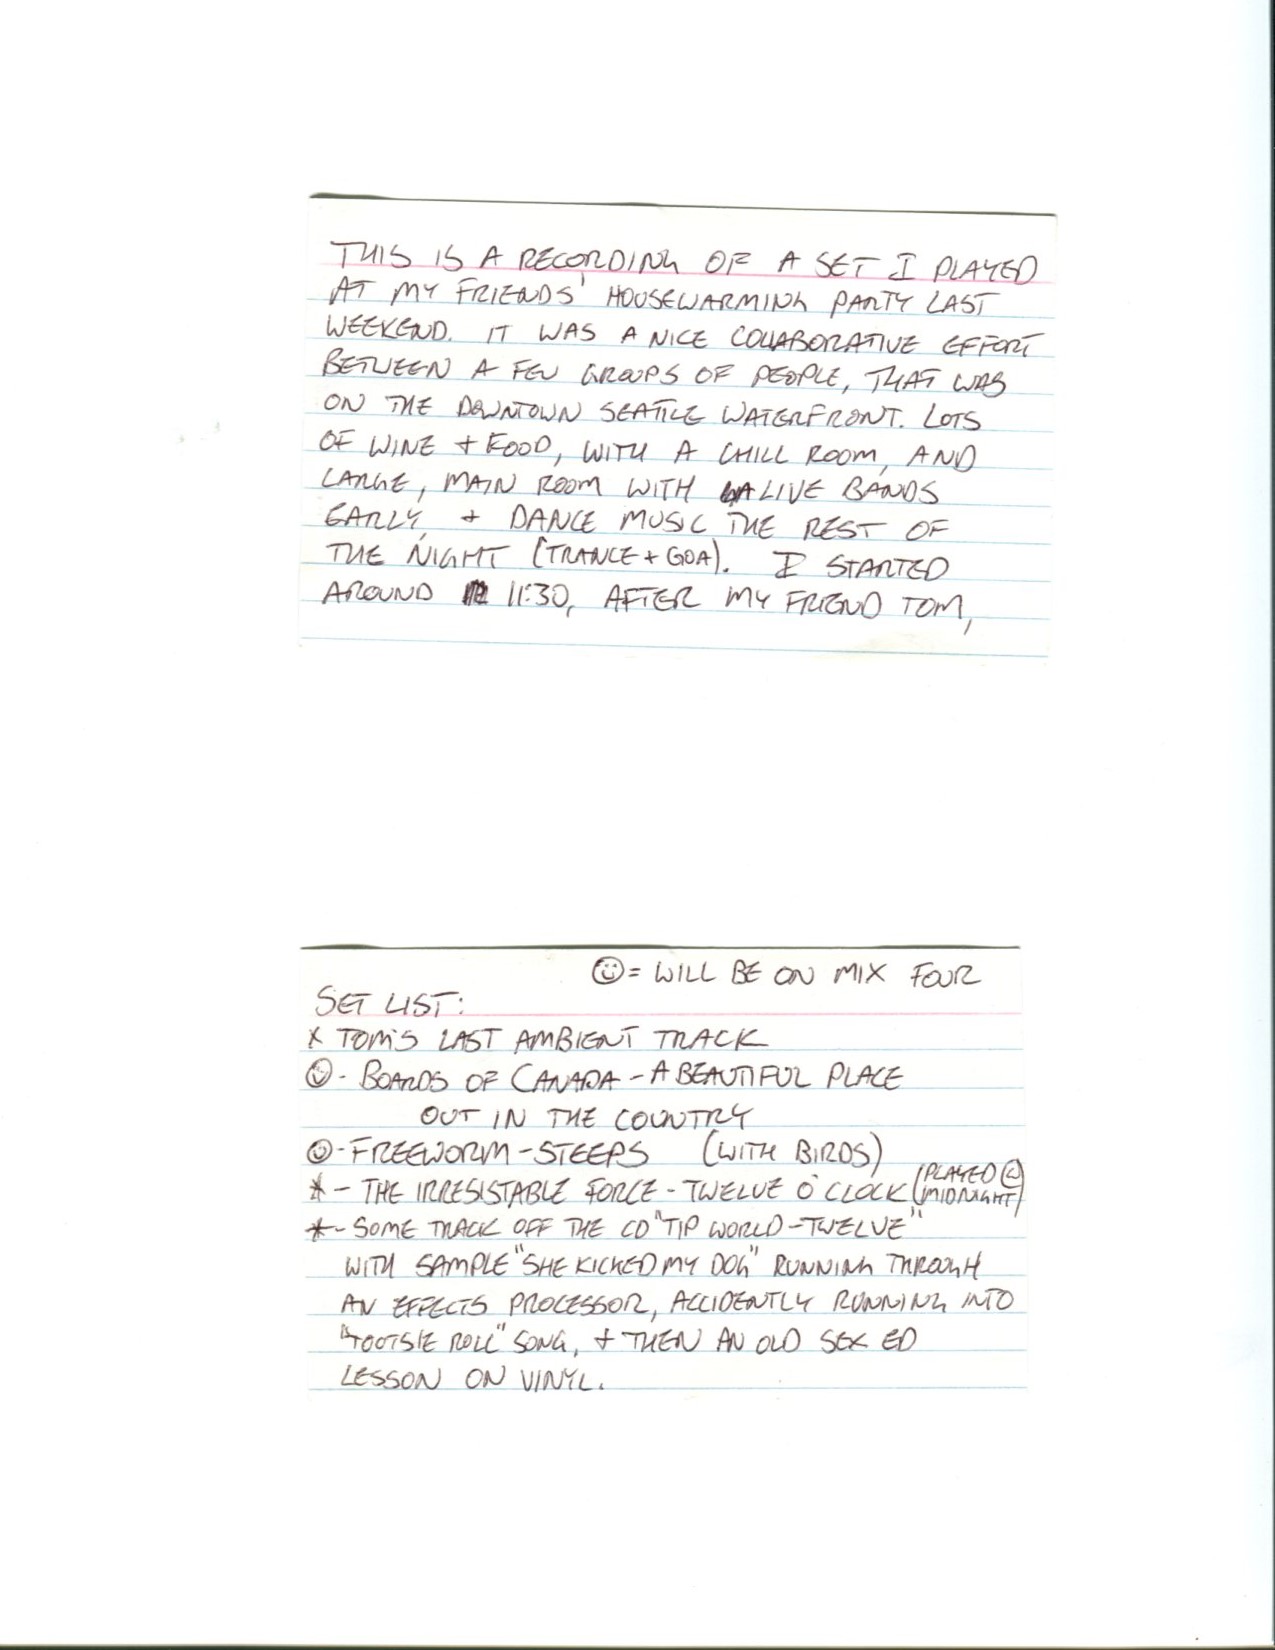 THIS IS A RECORDING OF A SET I PLAYED
AT MY FRIENDS' HOUSEWARMING PARTY LAST
WEEKEND. IT WAS A NICE COLLABORATIVE EFFORT
BETWEEN A FEW GROUPS OF PEOPLE, THAT WAS
ON THE DOWNTOWN SEATTLE WATERFRONT. LOTS
OF WINE + FOOD, WITH A CHILL ROOM, AND
LARGE, MAIN ROOM WITH LIVE BANDS
EARLY, + DANCE MUSIC THE REST OF
THE NIGHT (TRANCE + GOA). I STARTED
AROUND 11:30, AFTER MY FRIEND TOM,
☺ = WILL BE ON MIX FOUR
SET LIST:
X TOM'S LAST AMBIENT TRACK
☺ - BOARDS OF CANADA - A BEAUTIFUL PLACE
OUT IN THE COUNTRY
☺ - FREEWORM - STEEPS (WITH BIRDS)
* - THE IRRESISTABLE FORCE - TWELVE O'CLOCK (PLAYED @ MIDNIGHT)
* - SOME TRACK OFF THE CD "TIP WORLD - TWELVE"
WITH SAMPLE "SHE KICKED MY DOG" RUNNING THROUGH
AN EFFECTS PROCESSOR, ACCIDENTLY RUNNING INTO
"TOOTSIE ROLL" SONG, + THEN AN OLD SEX ED
LESSON ON VINYL.